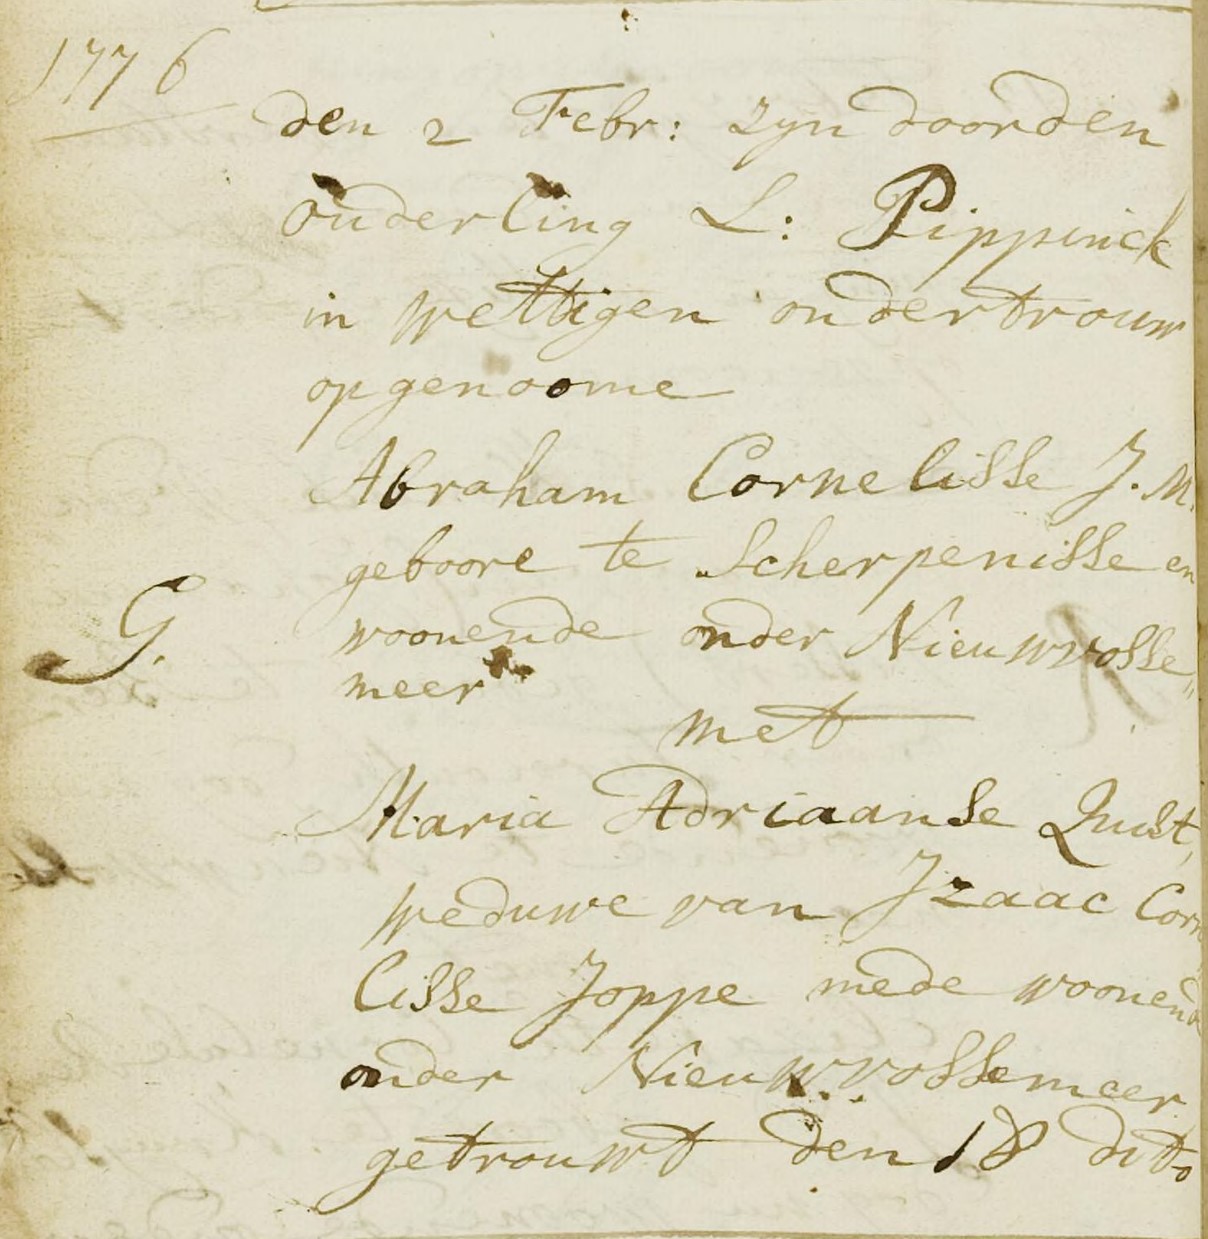 1776
den 2 Febr: zyn door den
ouderling L: Pippinck
in wettigen ondertrouw
opgenoome
Abraham Cornelisse J. M.
geboore te Scherpenisse en
G.
woonende onder Nieuwvosse,,
meer
met
Maria Adriaanse Quist,
weduwe van Izaac Corne
lisse Joppe mede woonend
onder Nieuwvossemeer
getrouwt den 18 ditto